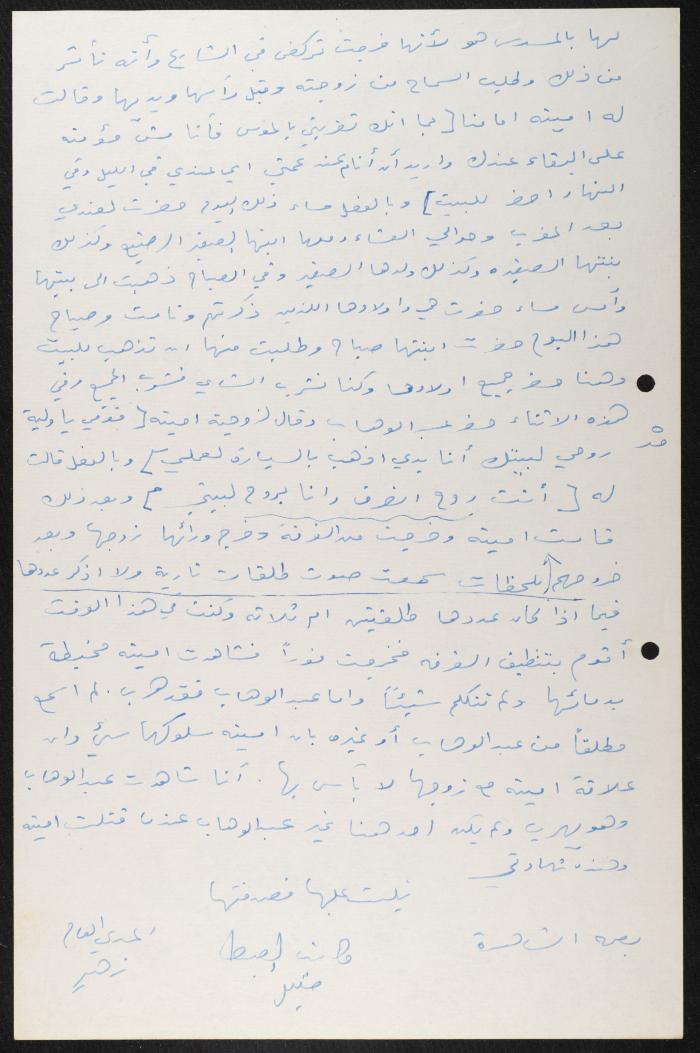 لها بالمسدس هو لأنها خرجت تركض في الشارع وأنه تأثر
من ذلك وطلب السماح من زوجته وقبل رأسها ويديها وقالت
له امينه امامنا [بما انك تضربني بالمسدس فأنا مش مؤمنه
على البقاء عندك واريد أن أنام عند عمتي اي عندي في الليل وفي
النهار احضر للبيت] وبالفعل مساء ذلك اليوم حضرت لعندي
بعد المغرب وحوالي العشاء ومعها ابنها الصغير الرضيع وكذلك
بنتها الصغيره وكذلك ولدها الصغير وفي الصباح ذهبت الى بيتها
وأمس مساء حضرت هي واولادها اللذين ذكرتهم ونامت وصباح
هذا اليوم حضرت ابنتها صباح وطلبت منها ان تذهب للبيت
وهنا حضر جميع اولادها وكنا نشرب الشاي فشرب الجميع وفي
هذه الاثناء حضر عبد الوهاب وقال لزوجته امينه [قومي يا ولية
روحي لبيتك أنا بدي اذهب بالسيارة لعملي] وبالفعل قالت
له [أنت روح انصرف وانا بروح لبيتي] وبعد ذلك
قامت امينه وخرجت من الغرفة وخرج ورائها زوجها وبعد
خروجهم بلحظات سمعت صوت طلقات نارية ولا اذكر عددها
فيما اذا كان عددها طلقتين ام ثلاثه وكنت في هذا الوقت
أقوم بتنظيف الغرفه فخرجت فوراً فشاهدت امينه مخبطة
بدمائها ولم تتكلم شيئاً واما عبد الوهاب فقد هرب. لم اسمع
مطلقاً من عبد الوهاب أو غيره بان امينه سلوكها سيئ وان
علاقة امينه مع زوجها لا بأس بها. أنا شاهدت عبد الوهاب
وهو يهرب ولم يكن احد هنا غير عبد الوهاب عندما قتلت امينه
وهذه شهادتي
تليت عليها فصدقتها
بصمة الشاهدة
كاتب الضبط
المدعي العام
زهير